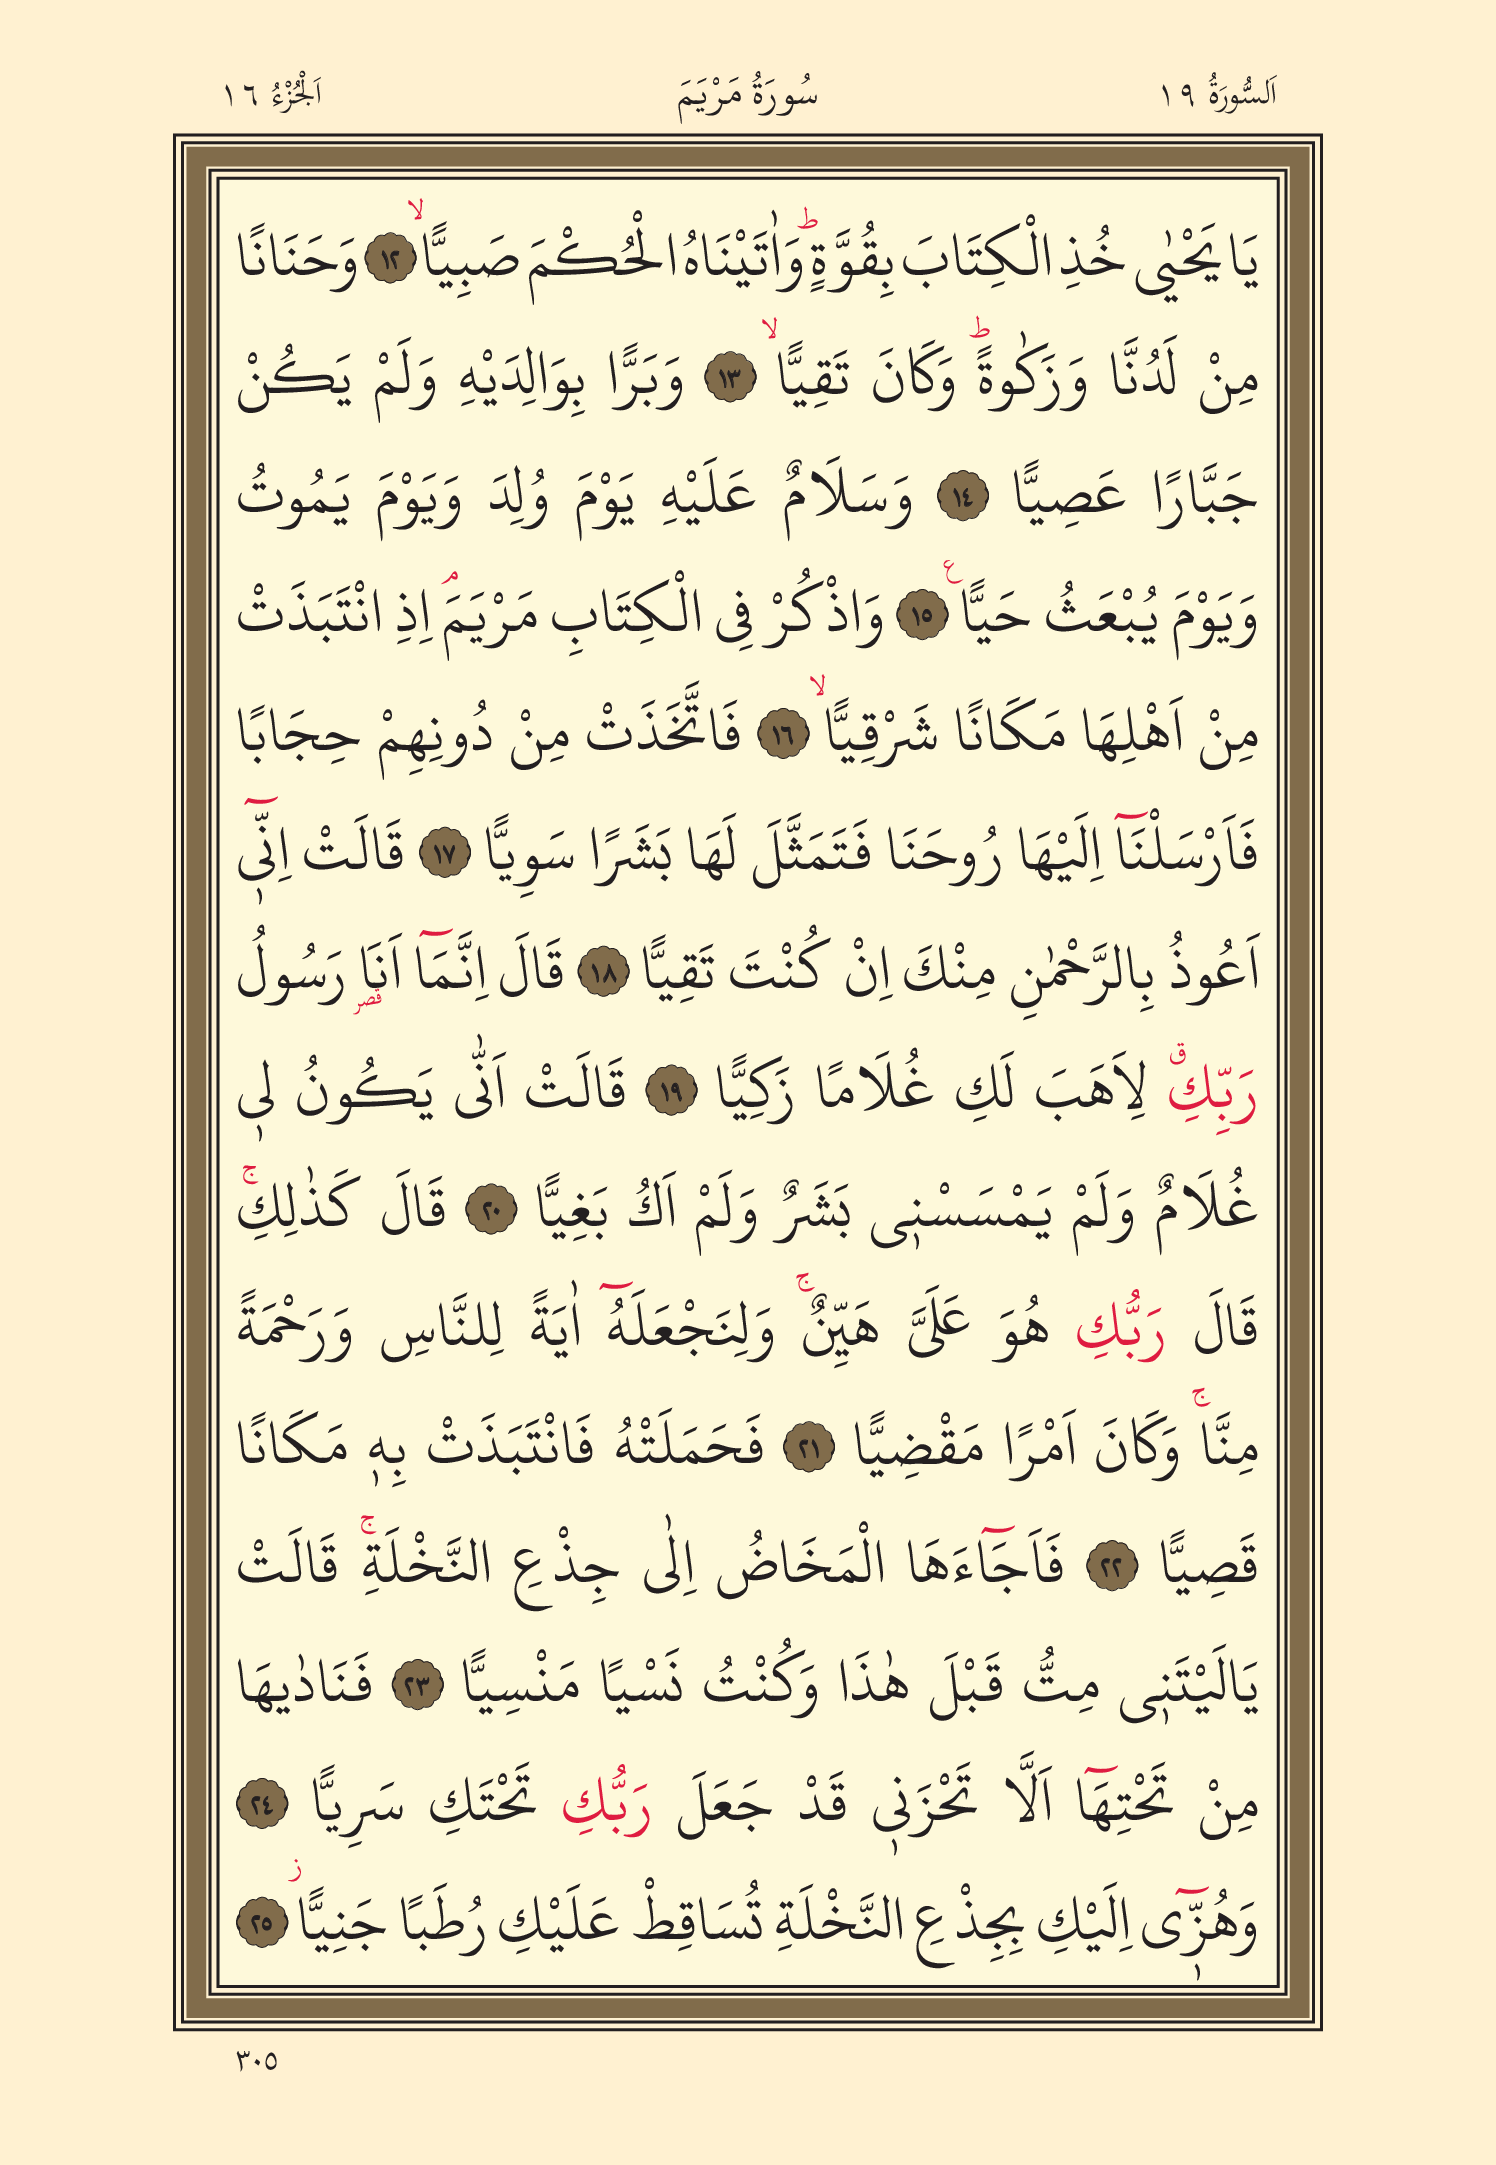 اَلسُّورَةُ ١٩ سُورَةُ مَرْيَمَ اَلْجُزْءُ ١٦
يَا يَحْيٰى خُذِ الْكِتَابَ بِقُوَّةٍۜ وَاٰتَيْنَاهُ الْحُكْمَ صَبِيًّاۙ ﴿١٢﴾ وَحَنَانًا
مِنْ لَدُنَّا وَزَكٰوةًۜ وَكَانَ تَقِيًّاۙ ﴿١٣﴾ وَبَرًّا بِوَالِدَيْهِ وَلَمْ يَكُنْ
جَبَّارًا عَصِيًّا ﴿١٤﴾ وَسَلَامٌ عَلَيْهِ يَوْمَ وُلِدَ وَيَوْمَ يَمُوتُ
وَيَوْمَ يُبْعَثُ حَيًّا۟ ﴿١٥﴾ وَاذْكُرْ فِي الْكِتَابِ مَرْيَمَۢ اِذِ انْتَبَذَتْ
مِنْ اَهْلِهَا مَكَانًا شَرْقِيًّاۙ ﴿١٦﴾ فَاتَّخَذَتْ مِنْ دُونِهِمْ حِجَابًا
فَاَرْسَلْنَٓا اِلَيْهَا رُوحَنَا فَتَمَثَّلَ لَهَا بَشَرًا سَوِيًّا ﴿١٧﴾ قَالَتْ اِنّ۪ٓي
اَعُوذُ بِالرَّحْمٰنِ مِنْكَ اِنْ كُنْتَ تَقِيًّا ﴿١٨﴾ قَالَ اِنَّمَٓا اَنَا۬ قصر رَسُولُ
رَبِّكِۗ لِاَهَبَ لَكِ غُلَامًا زَكِيًّا ﴿١٩﴾ قَالَتْ اَنّٰى يَكُونُ ل۪ي
غُلَامٌ وَلَمْ يَمْسَسْن۪ي بَشَرٌ وَلَمْ اَكُ بَغِيًّا ﴿٢٠﴾ قَالَ كَذٰلِكِۚ
قَالَ رَبُّكِ هُوَ عَلَيَّ هَيِّنٌۚ وَلِنَجْعَلَهُٓ اٰيَةً لِلنَّاسِ وَرَحْمَةً
مِنَّاۚ وَكَانَ اَمْرًا مَقْضِيًّا ﴿٢١﴾ فَحَمَلَتْهُ فَانْتَبَذَتْ بِه۪ مَكَانًا
قَصِيًّا ﴿٢٢﴾ فَاَجَٓاءَهَا الْمَخَاضُ اِلٰى جِذْعِ النَّخْلَةِۚ قَالَتْ
يَالَيْتَن۪ي مِتُّ قَبْلَ هٰذَا وَكُنْتُ نَسْيًا مَنْسِيًّا ﴿٢٣﴾ فَنَادٰيهَا
مِنْ تَحْتِهَٓا اَلَّا تَحْزَن۪ي قَدْ جَعَلَ رَبُّكِ تَحْتَكِ سَرِيًّا ﴿٢٤﴾
وَهُزّ۪ٓي اِلَيْكِ بِجِذْعِ النَّخْلَةِ تُسَاقِطْ عَلَيْكِ رُطَبًا جَنِيًّاۘ ﴿٢٥﴾
٣٠٥